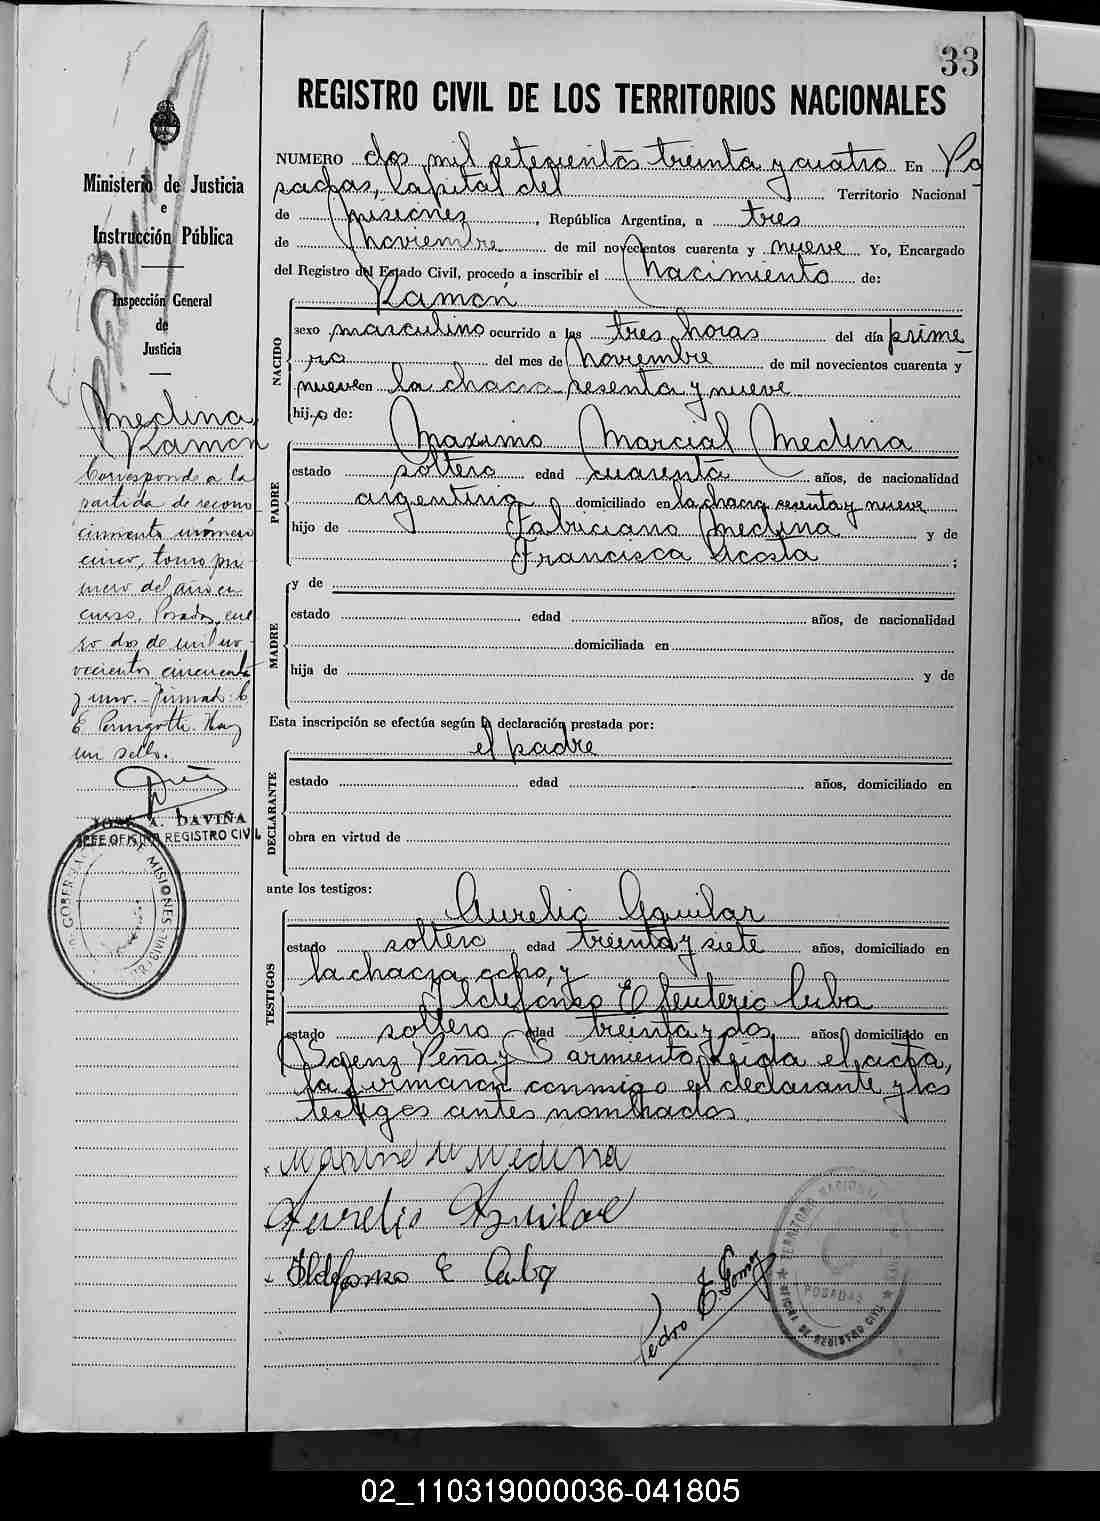 33
REGISTRO CIVIL DE LOS TERRITORIOS NACIONALES
NUMERO dos mil setecientos treinta y cuatro En Po
sadas, Capital del Territorio Nacional
de Misiones, República Argentina, a tres
de Noviembre de mil novecientos cuarenta y nueve Yo, Encargado
del Registro del Estado Civil, procedo a inscribir el Nacimiento de:
NACIDO
Ramón
sexo masculino ocurrido a las tres horas del día prime
ro del mes de Noviembre de mil novecientos cuarenta y
nueve en la chacra sesenta y nueve
hijo de:
PADRE
Maximo Marcial Medina
estado soltero edad cuarenta años, de nacionalidad
argentina domiciliado en la chacra sesenta y nueve
hijo de Fabriciano Medina y de
Francisca Acosta ;
MADRE
y de
estado edad años, de nacionalidad
domiciliada en
hija de y de
Esta inscripción se efectúa según la declaración prestada por:
DECLARANTE
el padre
estado edad años, domiciliado en
obra en virtud de
ante los testigos:
TESTIGOS
Aurelio Aguilar
estado soltero edad treinta y siete años, domiciliado en
la chacra ocho, y
Ildefonso Eleuterio Cuba
estado soltero edad treinta y dos años domiciliado en
Saenz Peña y Sarmiento. Leida el acta,
la firmaron conmigo el declarante y los
testigos antes nombrados
Maximo M Medina
Aurelio Aguilar
Ildefonso E Cuba
Pedro E. Gomez
TERRITORIO NACIONAL
POSADAS
OFICINA DE REGISTRO CIVIL
Ministerio de Justicia
e
Instrucción Pública
Inspección General
de
Justicia
Medina
Ramon
Corresponde a la
partida de recono
cimiento número
cinco, tomo pri-
mero del año en
curso. Posadas, ene
ro dos de mil no-
vecientos cincuenta
y uno.- Firmado: C
E. Hay
un sello.
JOSE A. DAVIÑA
JEFE OFICINA REGISTRO CIVIL
GOBERNACION DE MISIONES
02_110319000036-041805